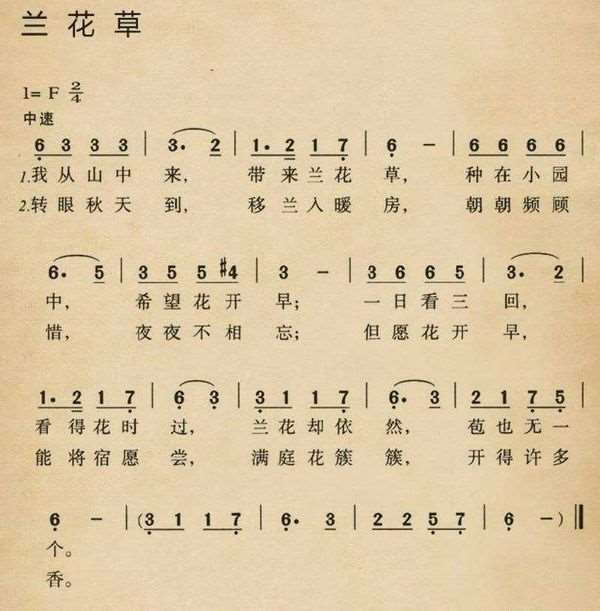 兰花草
1=F 2/4
中速
6 3 3 3 | 3. 2 | 1. 2 1 7 | 6 - | 6 6 6 6 |
1.我从山中来， 带来兰花草， 种在小园
2.转眼秋天到， 移兰入暖房， 朝朝频顾
6. 5 | 3 5 5 #4 | 3 - | 3 6 6 5 | 3. 2 |
中， 希望花开早； 一日看三回，
惜， 夜夜不相忘； 但愿花开早，
1. 2 1 7 | 6 3 | 3 1 1 7 | 6. 3 | 2 1 7 5 |
看得花时过， 兰花却依然， 苞也无一
能将宿愿尝， 满庭花簇簇， 开得许多
6 - | (3 1 1 7 | 6. 3 | 2 2 5 7 | 6 -)‖
个。
香。